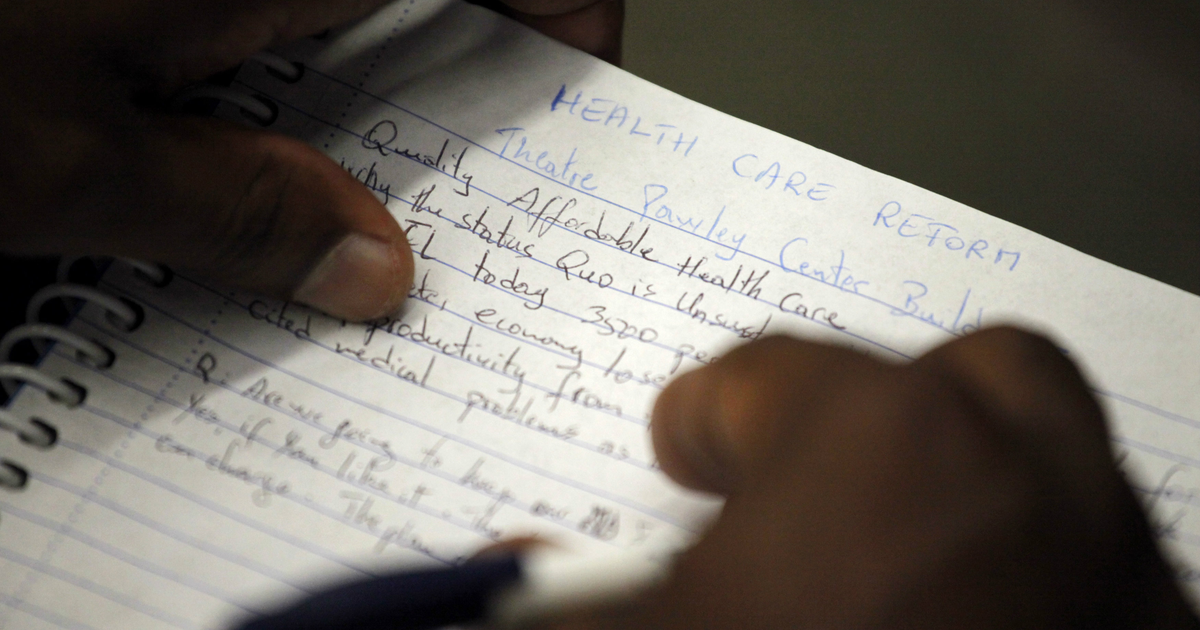 HEALTH CARE REFORM
Theatre Pawley Center Build
Quality Affordable Health Care
why the status Quo is Unsust
IL today 3500 peo
economy lose
productivity from
cited medical problems as
Q. Are we going to keep our
Yes, if you like it - the
can change. The plan